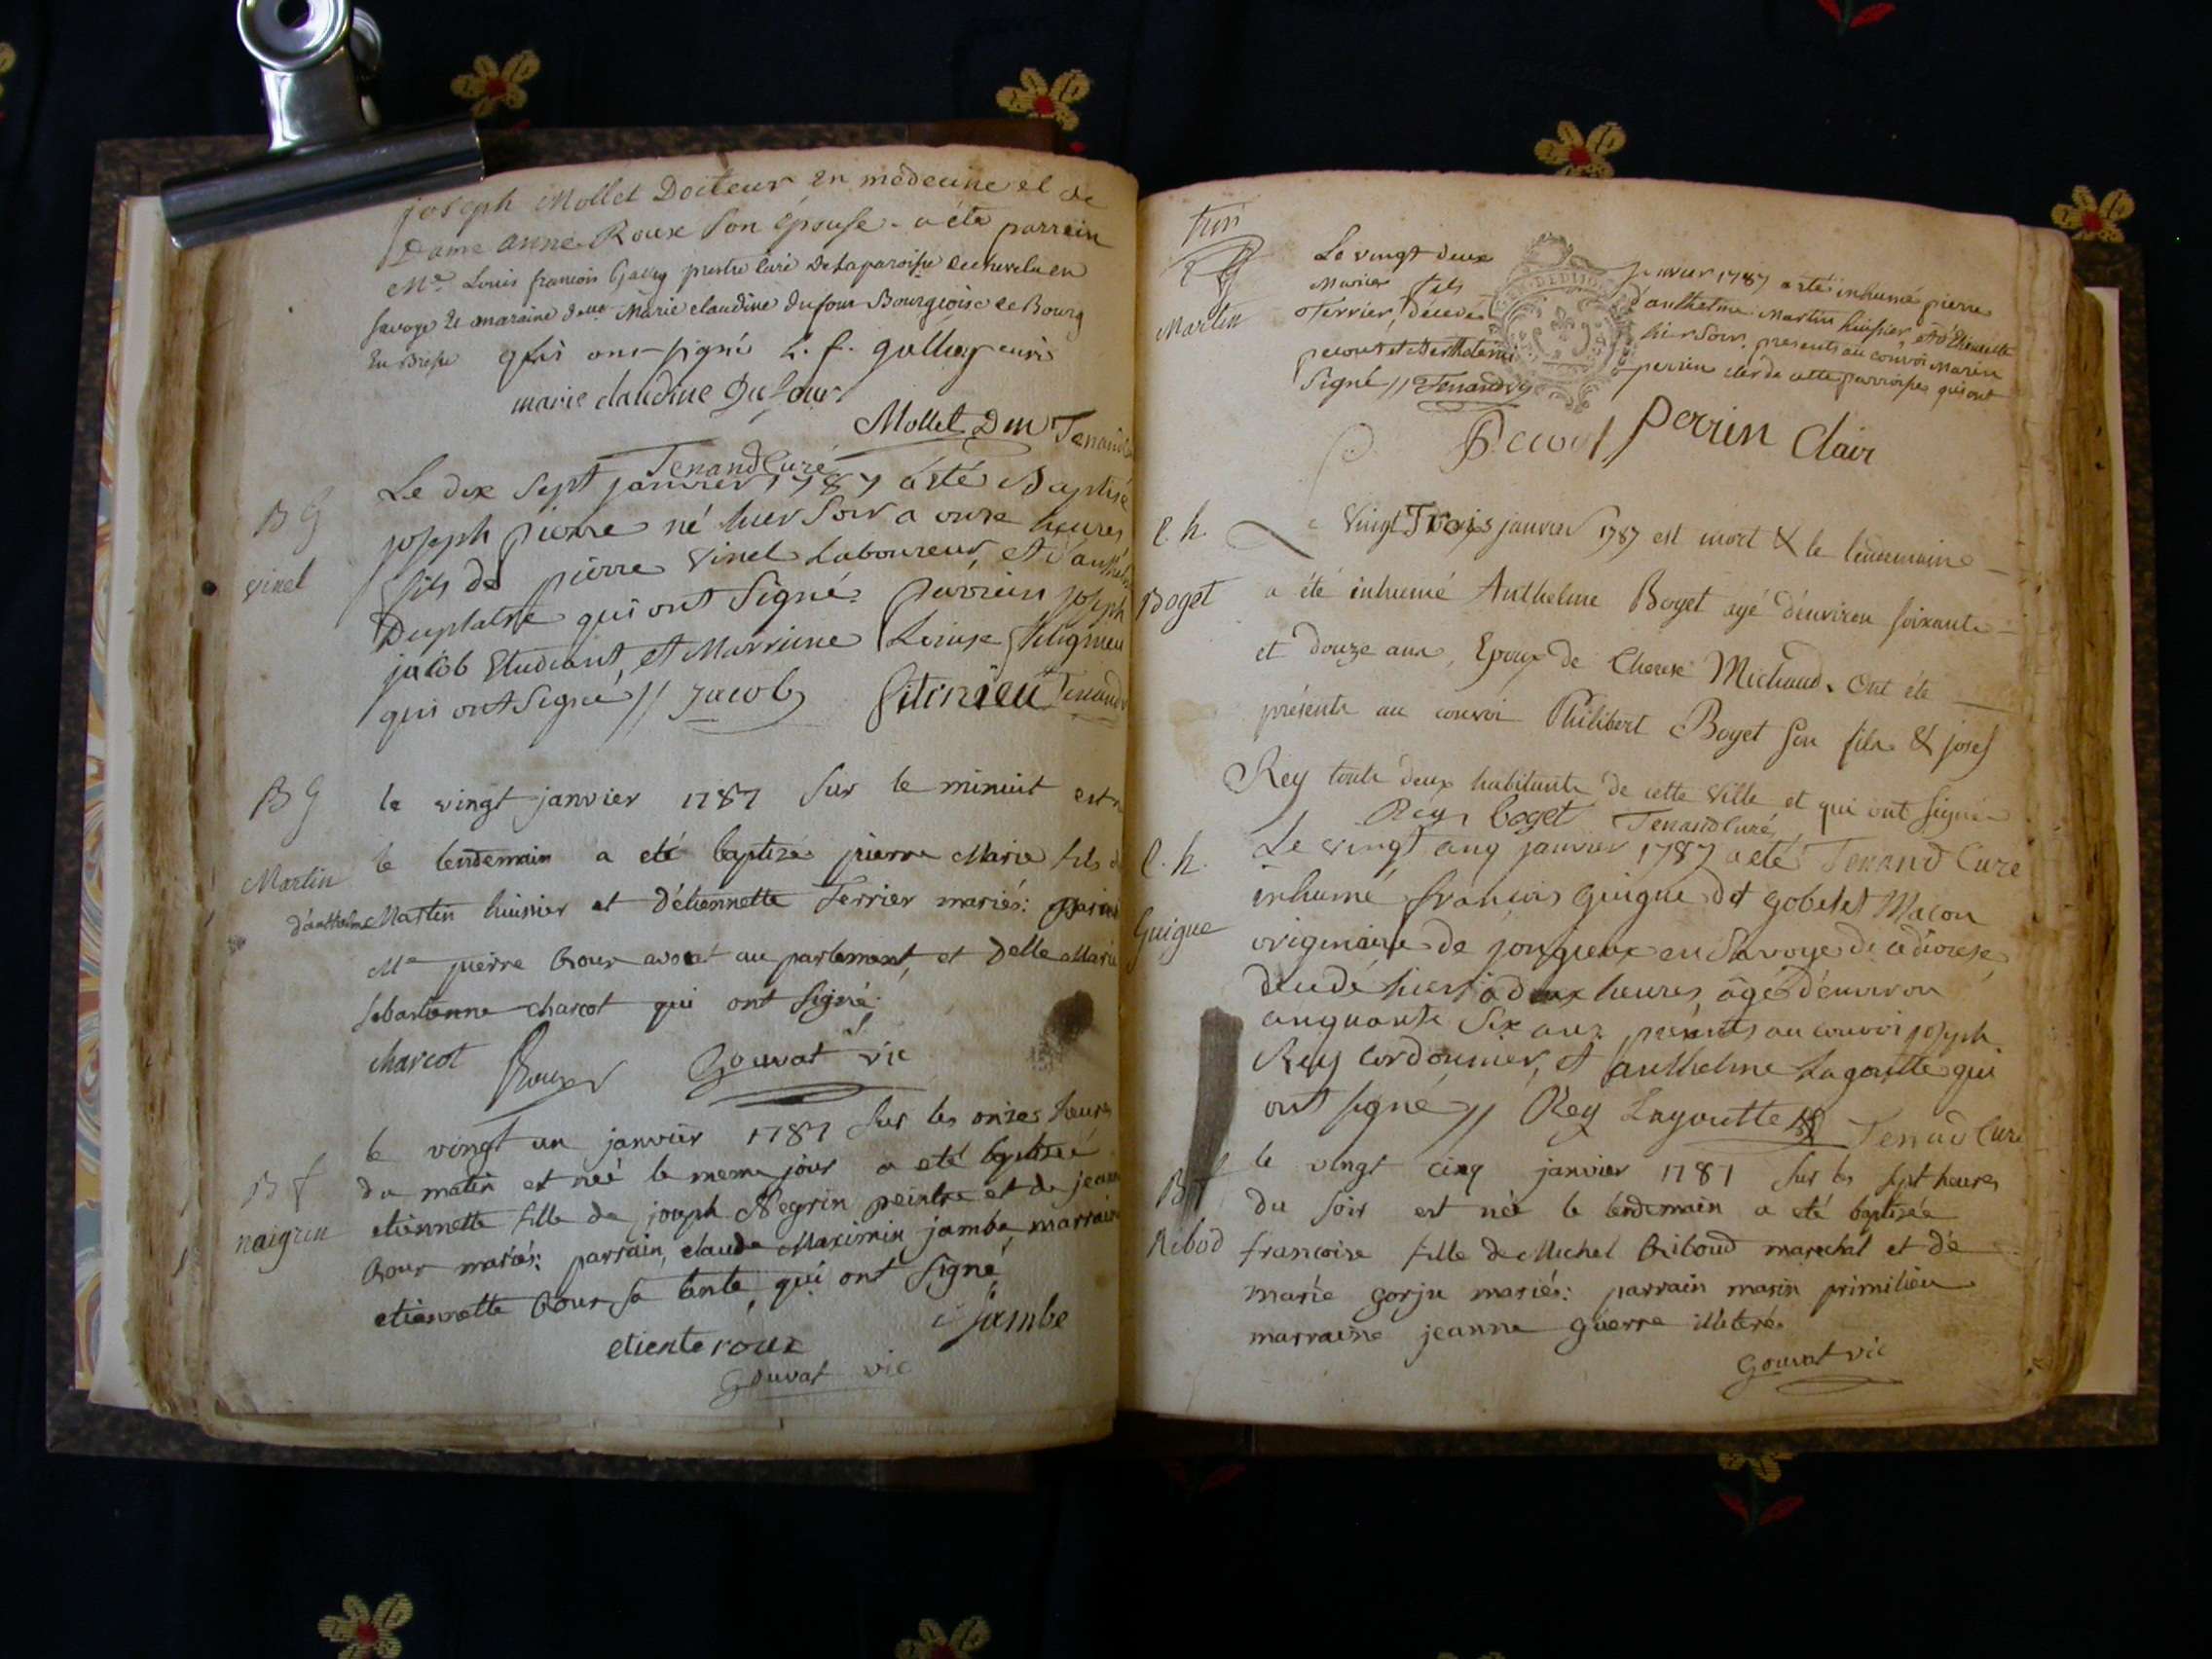 joseph Mollet Docteur en medecine et de
Dame anne Roux son épouse - a été parrein
Mre Louis francois prestre curé De la paroisse de chevelu en
savoye et maraine delle Marie claudine dufour Bourgeoise de Bourg
en Bresse qui ont signé L. f. curé
marie claudine Dufour
Mollet D m Tenand
Tenand Curé
B G
vinel
Le dix sept janvier 1787 a été Baptisé
joseph pierre né hier soir a onze heures
fils de pierre vinel Laboureur, et d'anthel
Duplatre qui ont signé. parrein joseph
jacob Etudiant, et Marreine Louise
qui ont signé // Jacob Tenand
B G
Martin
le vingt janvier 1787 sur le minuit est n
le lendemain a eté baptizé pierre Marie fils d
d'anthelme Martin huissier et d'étiennette Terrier mariés: parrein
Me pierre Roux avocat au parlement, et Delle Marie
sebastienne charcot qui ont signé:
charcot Roux Gouvat vic
B f
naigrin
le vingt un janvier 1787 sur les onzes heures
du matin est née le meme jour a eté baptisée
etiennette fille de joseph Negrin peintre et de jeanne
Roux mariés: parrain, claude Maximin jambe, marraine
etiennette Roux sa tante, qui ont signé
etiente roux jambe
Gouvat vic
trois
Martin
GEN. DE DIJON
Le vingt deux janvier 1787 a été inhumé pierre
Marier fils d'anthelme Martin huissier, et d'Etiennette
Terrier, décédé hier soir, presents au convoi Marin
pecout et Berthelemi perrin clerc de cette parroisse qui ont
signé // Tenand
Pecout perrin Clair
C. h.
Boget
Le Vingt Trois janvier 1787 est mort & le lendemain
a été inhumé Anthelme Boget agé d'environ soixante
et douze ans, Epoux de Therese Michaud. Ont été
présents au convoi Philibert Boget son fils & josef
Rey touts deux habitants de cette Ville et qui ont signé
Rey boget Tenand Curé
C. h.
Guigue
Le vingt cinq janvier 1787 a eté Tenand Curé
inhumé francois Guigue dit gobelet Macon
originaire de jongieux en Savoye de ce diocese,
decedé hier a deux heures, âgé d'environ
cinquante six ans, présents au convoi joseph
Rey cordonnier, et anthelme Lagoutte qui
ont signé // Rey Lagoutte Tenand Curé
B f
Ribod
le vingt cinq janvier 1787 sur les sept heures
du soir est née le lendemain a eté baptisée
francoise fille de Michel Riboud marechal et de
marie gorju mariés: parrain marin primilieu
marraine jeanne guerre illiterés
Gouvat vic